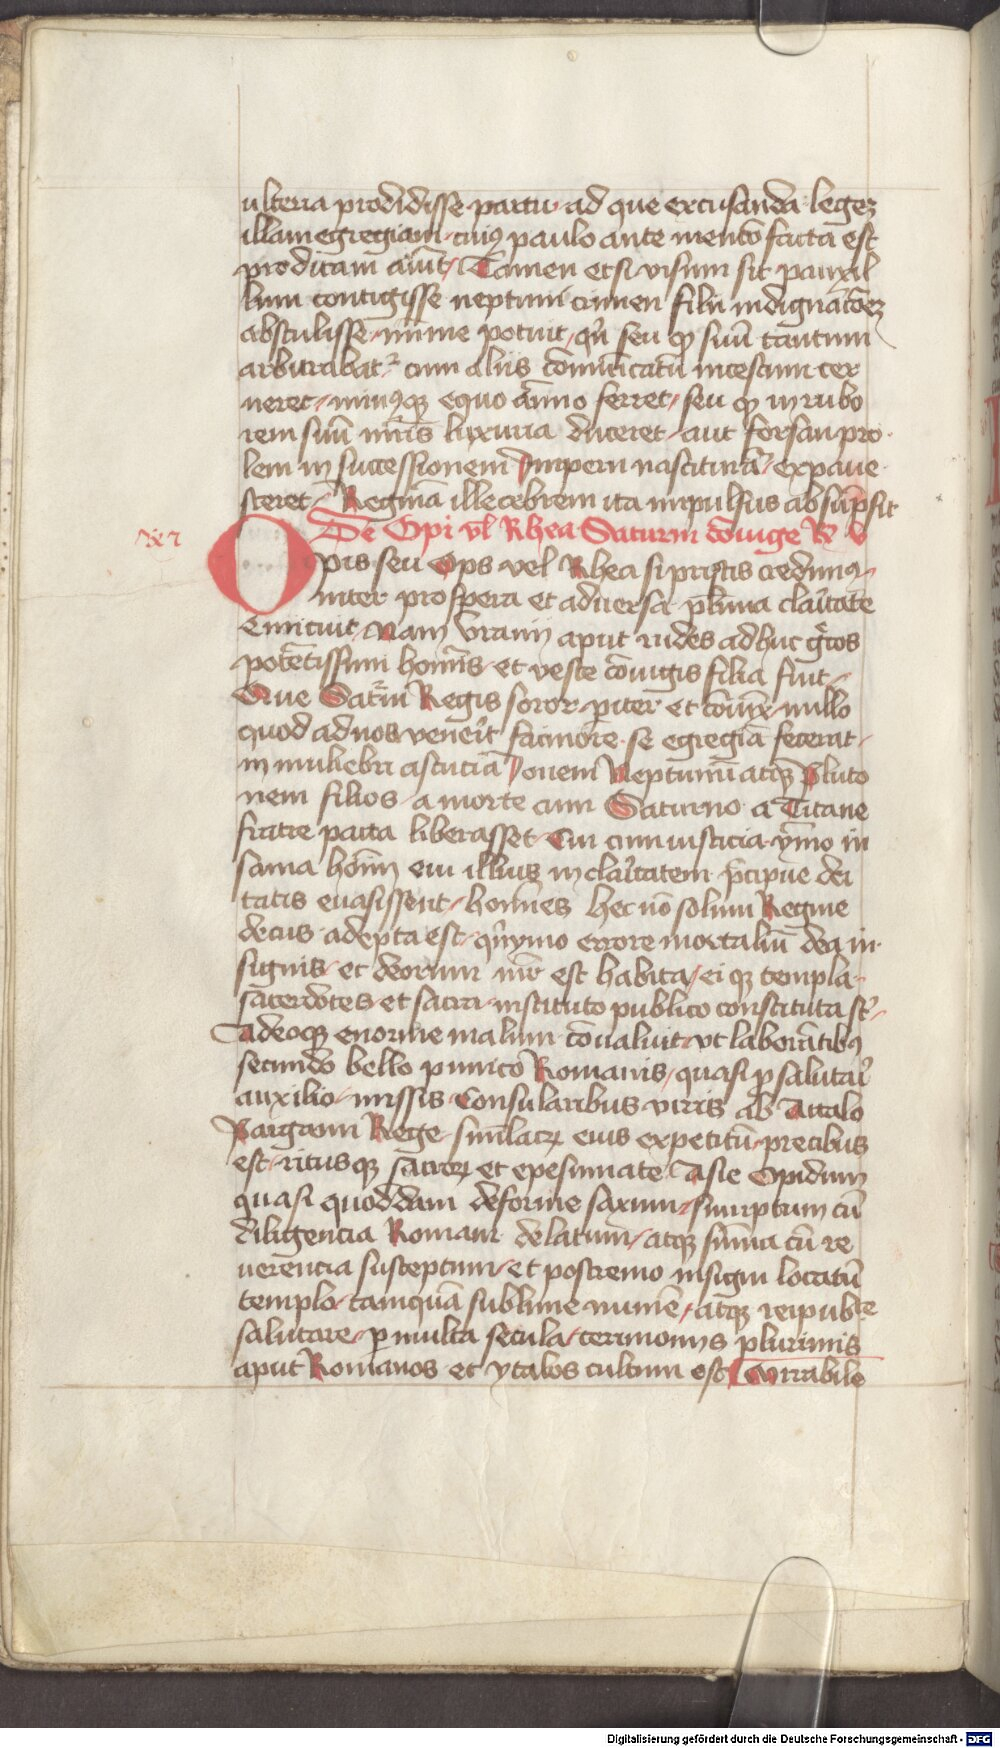 ulteria prodidisse partu ad que excusanda legez
illam egregiam cuiꝰ paulo ante mentō facta est
proditam aiūt Tamen etsi visum sit pauxil
lum contigisse neptuni crimen filii indignacōez
abstulisse minime potuit qn̄ seu ꝙ suū tantum
arbitrabat᷑ cum aliis cōmūicatū incestum cer
neret minꝰqꝫ equo aīmo ferret seu ꝙ in rubo
rem suū mr̄is luxuria duceret aut forsan pro
lem in successionem Imperii nasciturā expaue
sceret Reginā illecebrem ita impulsus absūpsit
De Opi vl̄ Rhea Saturni cōiuge R V
Opis seu Ops vel Rhea si pristis credimꝰ
inter prospera et aduersa plurima claritate
Emicuit Nam Vranij aput rudes adhuc grēos
potētissimi homīs et veste cōiugis filia fuit
Que Sat᷑ni Regis soror piter et cōiūx nullo
quod ad nos venerit facinore se egregiā fecerat
ni muliebri astuciā Iouem Neptunū atqꝫ Pluto
nem filios a morte cum Saturno a Titane
fratre pacta liberasset Qui cum iusticia ymo in
sania hoīm eui illius in claritatem p̄cipue dei
tatis euasissent homines hec nō solum Regine
decus adepta est qn̄ymo errore mortaliū dea in
signis et deorum mr̄ est habita ei qꝫ templa
sacerdotes et sacra instituto publico constituta st̄
Adeoqꝫ enorme malum cōualuit vt laborātibꝰ
secundo bello punico Romanis quasi ꝓ salutari
auxilio missis Consularibus viris ab Attalo
Pargami Rege simlacrꝝ eius expetitū precibus
est ritusqꝫ sacrorꝝ et epesinunte Asie Opidum
quasi quoddam deforme saxum sumptum cū
diligencia Romam delatum atqꝫ sūma cū re
uerencia susceptum et postremo insigni locatū
templo tamquā sublime numē atqꝫ reipubĺe
salutare ꝑ multa secula cerimoniis plurimis
aput Romanos et ytalos cultum est Mirabile
Digitalisierung gefördert durch die Deutsche Forschungsgemeinschaft - DFG